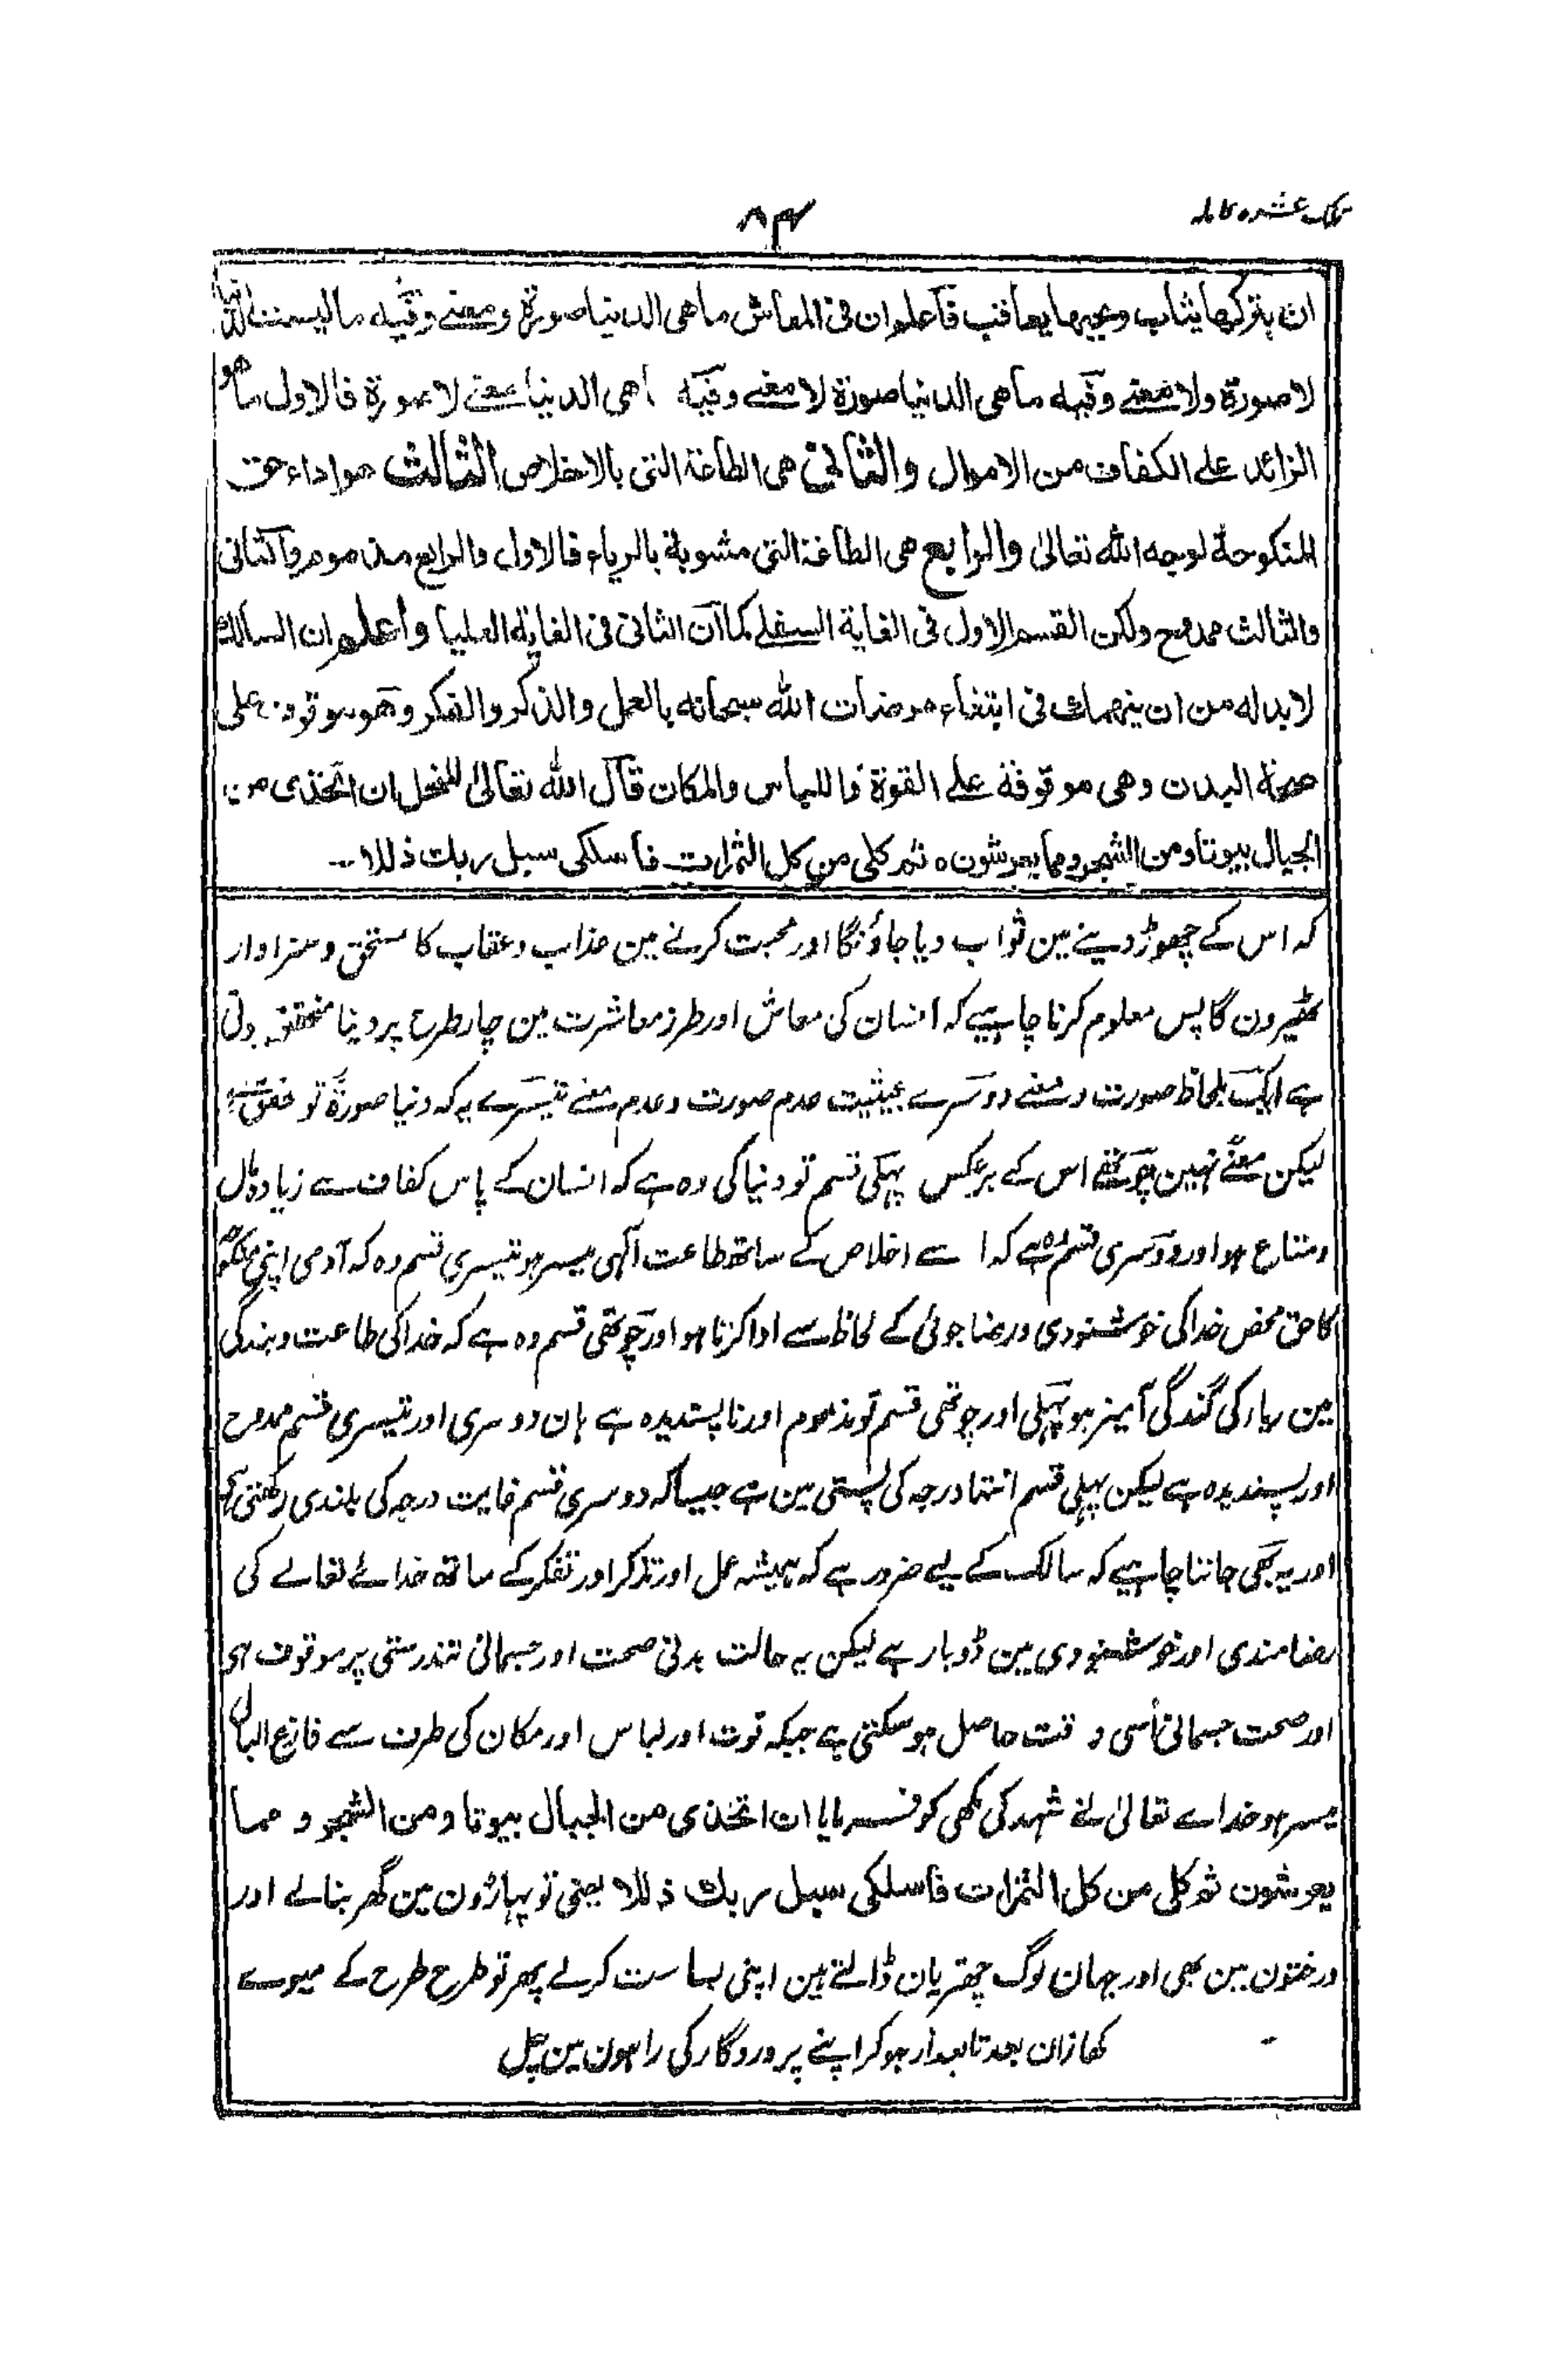 تلک عشرہ کاملہ
۸۴
ان بترکہا یثاب وبحبہا یعاقب فاعلم ان فی المعاش ما ھی الدنیا صورة ومعنے وفیہ ما لیست الدنیا
لا صورة ولا معنے وفیہ ما ھی الدنیا صورة لا معنے وفیہ ا ھی الدنیا معنے لا صورة فالاول ما ھو
الزائد علے الکفاف من الاموال والثانی ھی الطاعة التی بالاخلاص الثالث ھو اداء حق
المنکوحة لوجہ اللہ تعالیٰ والرابع ھی الطاعة التی مشوبة بالریاء فالاول والرابع مذموم والثانی
والثالث ممدوح ولکن القسم الاول فی الغایة السفلے کما ان الثانی فی الغایة العلیا واعلم ان السالک
لابد لہ من ان ینہمک فی ابتغاء مرضات اللہ سبحانہ بالعمل والذکر والفکر وھو موقوف علی
صحة البدن وھی موقوفة علے القوة فاللباس والمکان قال اللہ تعالیٰ للنحل ان اتخذی من
الجبال بیوتا ومن الشجر ومما یعرشون ہ ثم کلی من کل الثمرات فاسلکی سبل ربک ذللا۔۔
کہ اس کے چھوڑ دینے مین ثواب دیا جاؤنگا اور محبت کرنے مین عذاب وعقاب کا مستحق وسزاوار
ٹھیرون گا پس معلوم کرنا چاہیے کہ انسان کی معاش اور طرز معاشرت مین چار طرح پر دینا متحقق ہوتی
ہے ایک بلحاظ صورت ومعنے دوسرے بحیثیت عدم صورت وعدم معنے تیسرے یہ کہ دنیا صورۃً تو متحقق ہے
لیکن معنےً نہین چوتھے اس کے برعکس پہلی قسم تو دنیا کی وہ ہے کہ انسان کے پاس کفاف سے زیادہ مال
ومتاع ہو اور دوسری قسم وہ ہے کہ ا سے اخلاص کے ساتھ طاعت الٰہی میسر ہو تیسری قسم وہ کہ آدمی اپنی منکوحہ
کا حق محض خدا کی خوشنودی ورضا جوئی کے لحاظ سے ادا کرتا ہو اور چوتھی قسم وہ ہے کہ خدا کی طاعت وبندگی
مین ریا کی گندگی آمیز ہو پہلی اور چوتھی قسم تو مذموم اور ناپسندیدہ ہے ہان دوسری اور تیسری قسم ممدوح
اور پسندیدہ ہے لیکن پہلی قسم انتہا درجہ کی پستی مین ہے جیسا کہ دوسری قسم غایت درجہ کی بلندی رکھتی ہے
اور یہ بھی جاننا چاہیے کہ سالک کے لیے ضرور ہے کہ ہمیشہ عمل اور تذکر اور تفکر کے ساتھ خدائے تعالے کی
رضامندی اور خوشنودی مین ڈوبا رہے لیکن یہ حالت بدنی صحت اور جسمانی تندرستی پر موقوف ہی
اور صحت جسمانی اسی وقت حاصل ہو سکتی ہے جبکہ قوت اور لباس اور مکان کی طرف سے فارغ البالی
میسر ہو خداے تعالیٰ نے شہد کی مکھی کو فرمایا ان اتخذی من الجبال بیوتا ومن الشجر و مما
یعرشون ثم کلی من کل الثمرات فاسلکی سبل ربک ذللا یعنی تو پہاڑون مین گھر بنا لے اور
درختون مین بھی اور جہان لوگ چھتریان ڈالتے ہین اپنی بساست کر لے پھر تو طرح طرح کے میوے
کھا ازان بعد تابعدار ہو کر اپنے پروردگار کی راہون مین چل